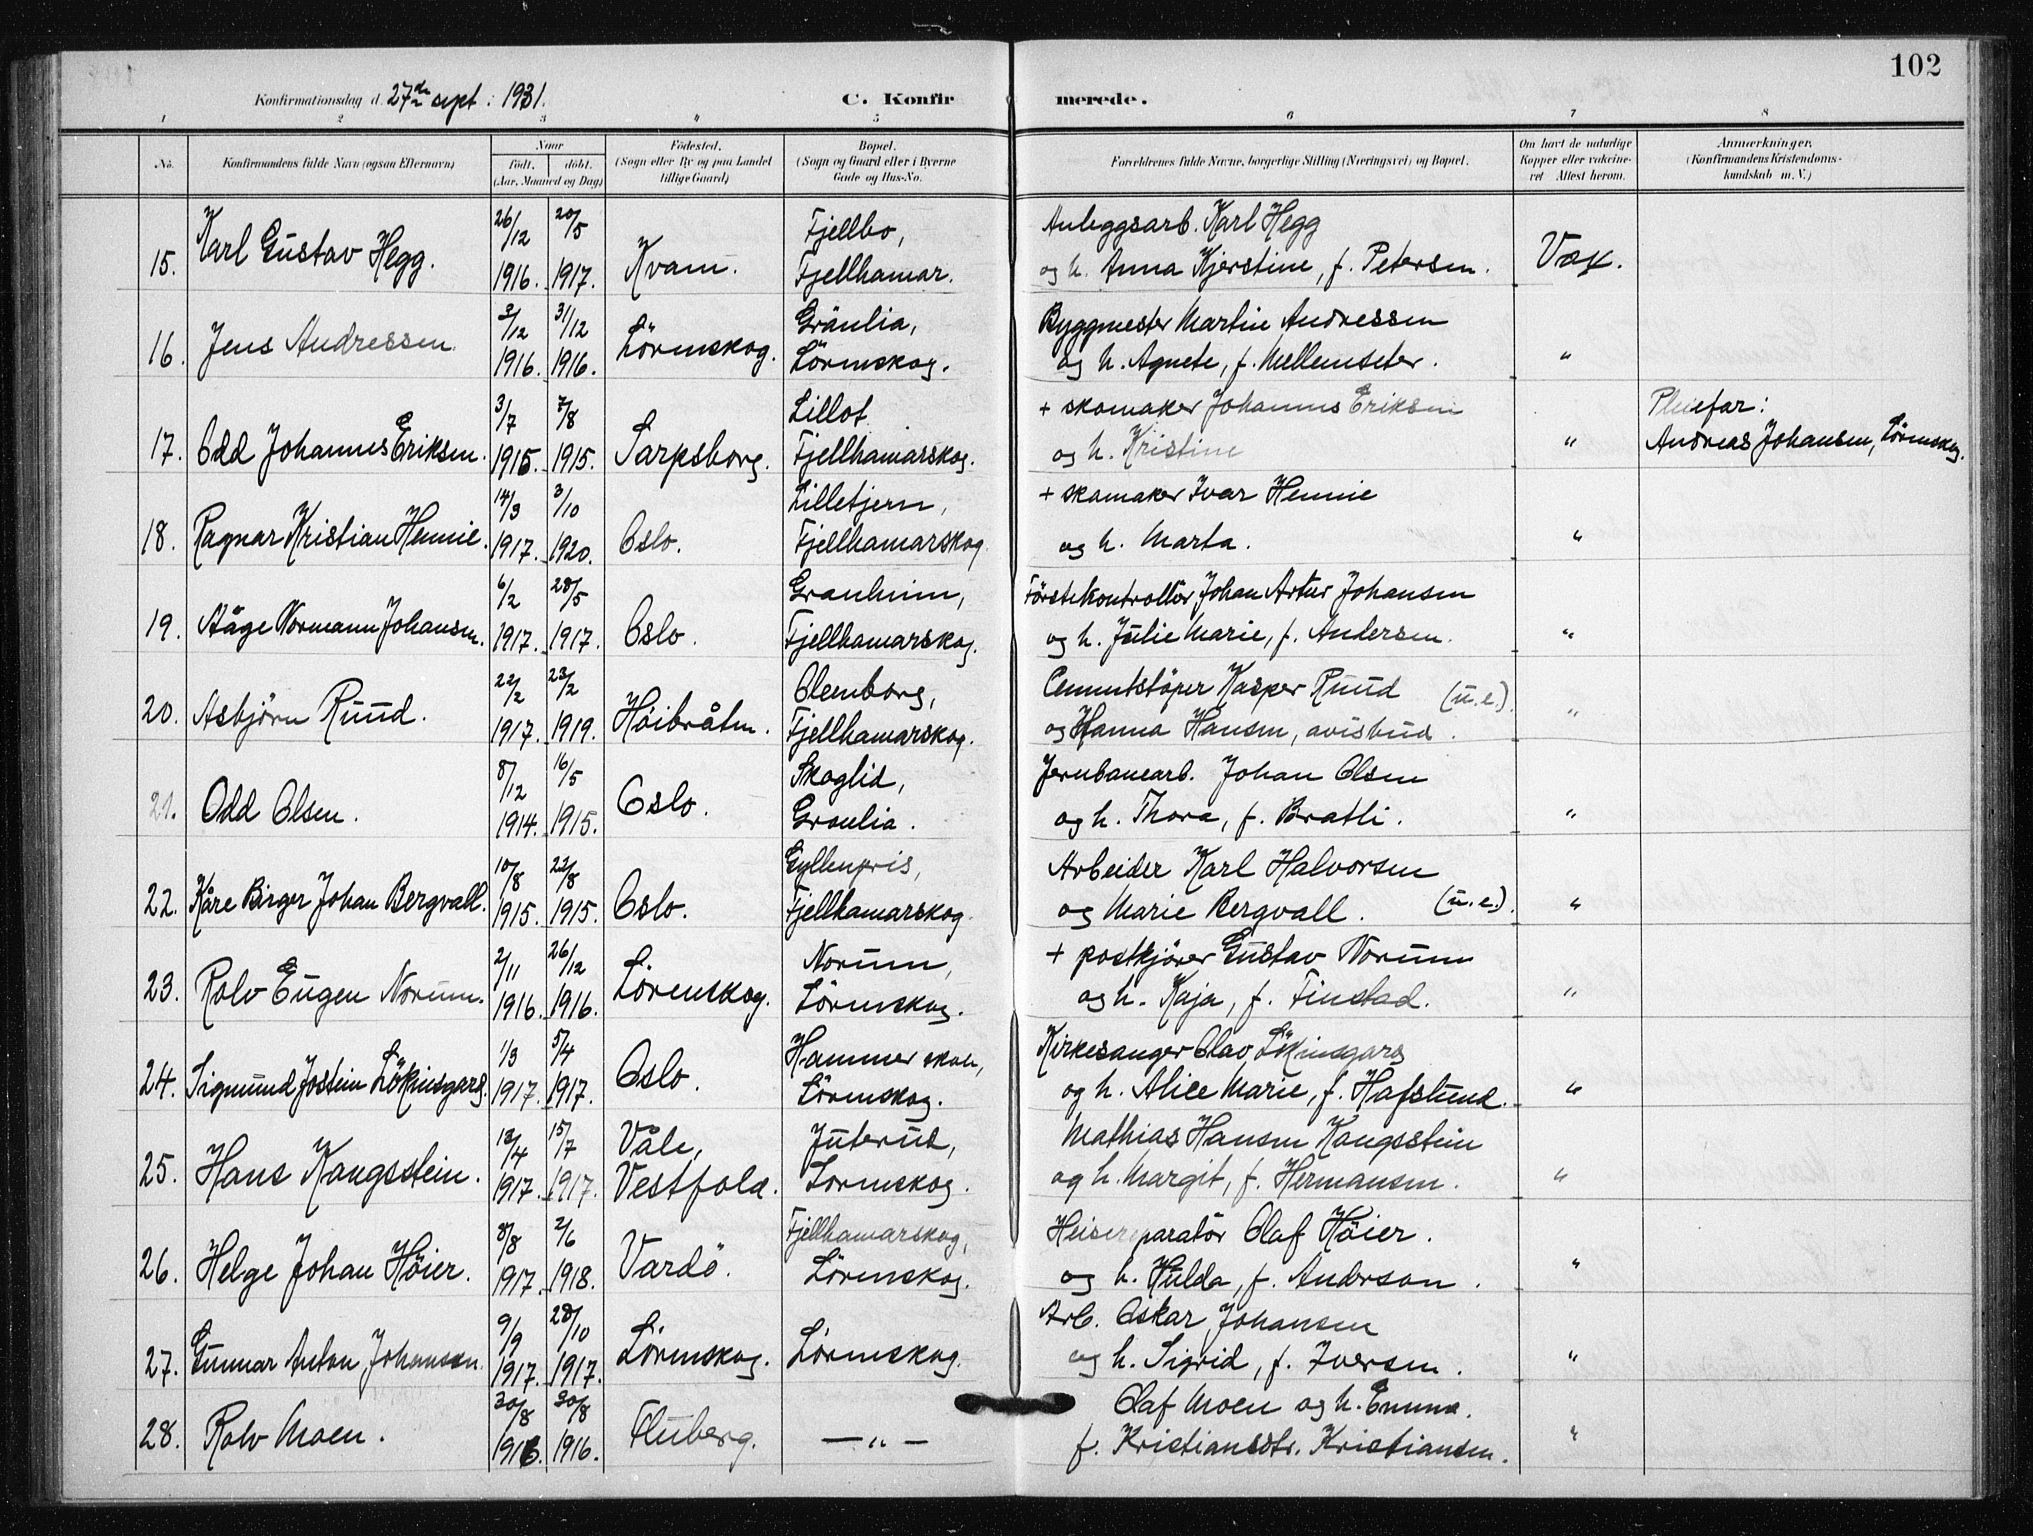 102
Konfirmationsdag d. 27de sept. 1931.
C. Konfirmerede.
1 2 3 4 5 6 7 8
No. Konfirmandens fulde Navn (ogsaa Efternavn) Naar født. døbt. (Aar, Maaned og Dag) Fødested. (Sogn eller By og paa Landet tillige Gaard) Bopæl. (Sogn og Gaard eller i Byerne Gade og Hus-No. Forældrenes fulde Navne, borgerlige Stilling (Næringsvei) og Bopæl. Om havt de naturlige Kopper eller vakcineret Attest herom. Anmærkninger. (Konfirmandens Kristendomskundskab m. V.)
26/12 20/5 Fjellbo, Anleggsarb. Karl Hegg
15. Karl Gustav Hegg. 1916. 1917. Kvam. Fjellhamar. og h. Anna Kjerstine, f. Petersen. Vax.
2/12 31/12 Gränlia, Byggmester Martin Andressen
16. Jens Andressen. 1916. 1916. Lörenskog. Lörenskog. og h. Agnete, f. Mellemseter. "
3/7 7/8 Lillot + skomaker Johannes Eriksen Pleiefar:
17. Odd Johannes Eriksen. 1915. 1915. Sarpsborg. Fjellhamarskog. og h. Kristine " Andreas Johansen, Lörenskog.
14/3 3/10 Lilletjern, + skomaker Ivar Hennie
18. Ragnar Kristian Hennie. 1917. 1920. Oslo. Fjellhamarskog. og h. Marta. "
6/2 28/5 Granheim, Förstekontrollör Johan Artur Johansen
19. Aage Normann Johansen. 1917. 1917. Oslo. Fjellhamarskog. og h. Julie Marie, f. Andersen. "
22/2 23/2 Olemborg, Cementstöper Kasper Ruud (u.e.).
20. Asbjörn Ruud. 1917. 1919. Höibråten. Fjellhamarskog. og Hanna Hansen, avisbud. "
8/12 16/5 Skoglid, Jernbanearb. Johan Olsen
21. Odd Olsen. 1914. 1915. Oslo. Granlia. og h. Thora, f. Bratli. "
10/8 22/8 Gyllenpris, Arbeider Karl Halvorsen
22. Kåre Birger Johan Bergvall. 1915. 1915. Oslo. Fjellhamarskog. og Marie Bergvall. (u.e.). "
2/11 26/12 Norum, + postkjörer Gustav Norum
23. Rolv Eugen Norum. 1916. 1916. Lörenskog. Lörenskog. og h. Kaja, f. Finstad. "
1/3 5/4 Hammer skole, Kirkesanger Olav Lökinsgard
24. Sigmund Jostein Lökinsgard. 1917. 1917. Oslo. Lörenskog. og h. Alice Marie, f. Hafslund. "
13/4 15/7 Våle, Juterud, Mathias Hansen Kongsstein
25. Hans Kongsstein. 1917. 1917. Vestfold. Lörenskog. og h. Margit, f. Hermansen. "
8/8 2/6 Fjellhamarskog, Heisereparatör Olaf Höier.
26. Helge Johan Höier. 1917. 1918. Vardö. Lörenskog. og h. Hulda, f. Anderson. "
9/9 28/10 Arb. Oskar Johansen
27. Gunnar Anton Johansen. 1917. 1917. Lörenskog. Lörenskog. og h. Sigrid, f. Iversen. "
30/8 30/8 Olaf Moen og h. Emma.
28. Rolv Moen. 1916. 1916. Fluberg. — " — f. Kristiansdtr. Kristiansen. "